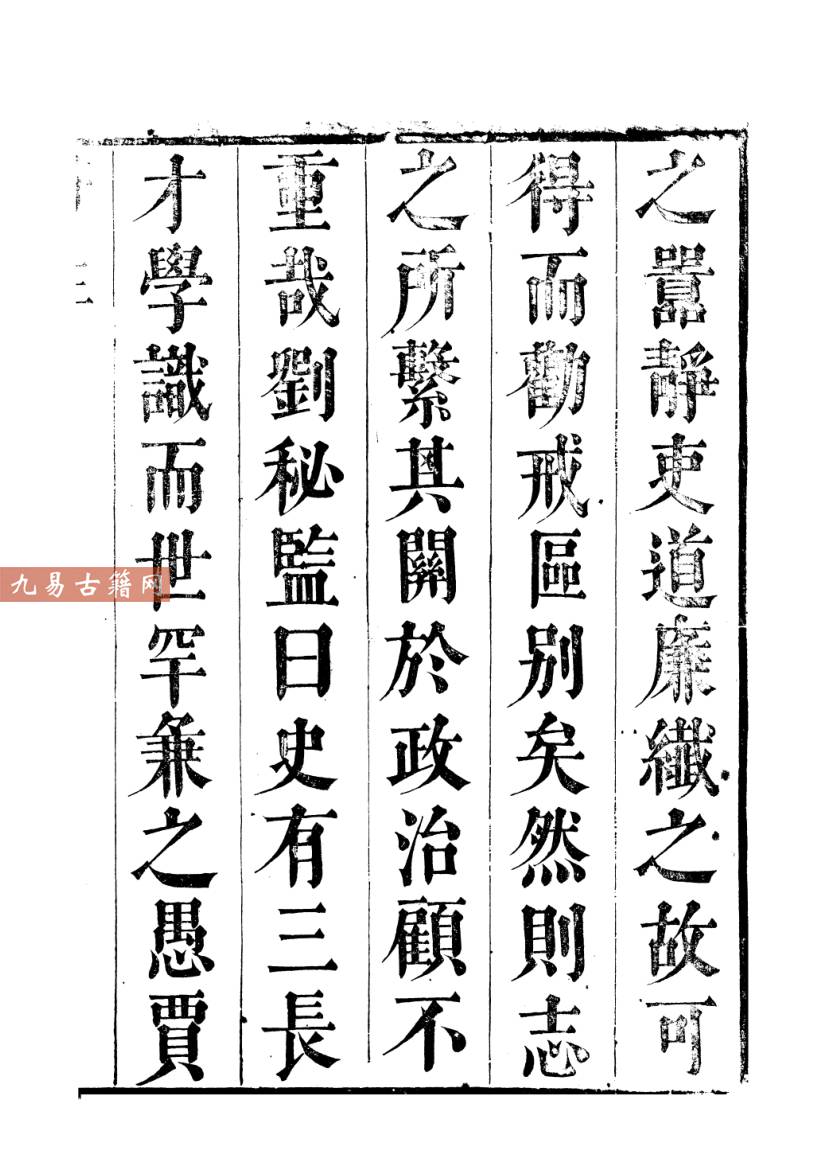 之囂靜吏道廉纖之故可
得而勸戒區别矣然則志
之所繫其關於政治顧不
重哉劉秘監曰史有三長
才學識而世罕兼之愚賈
九易古籍网